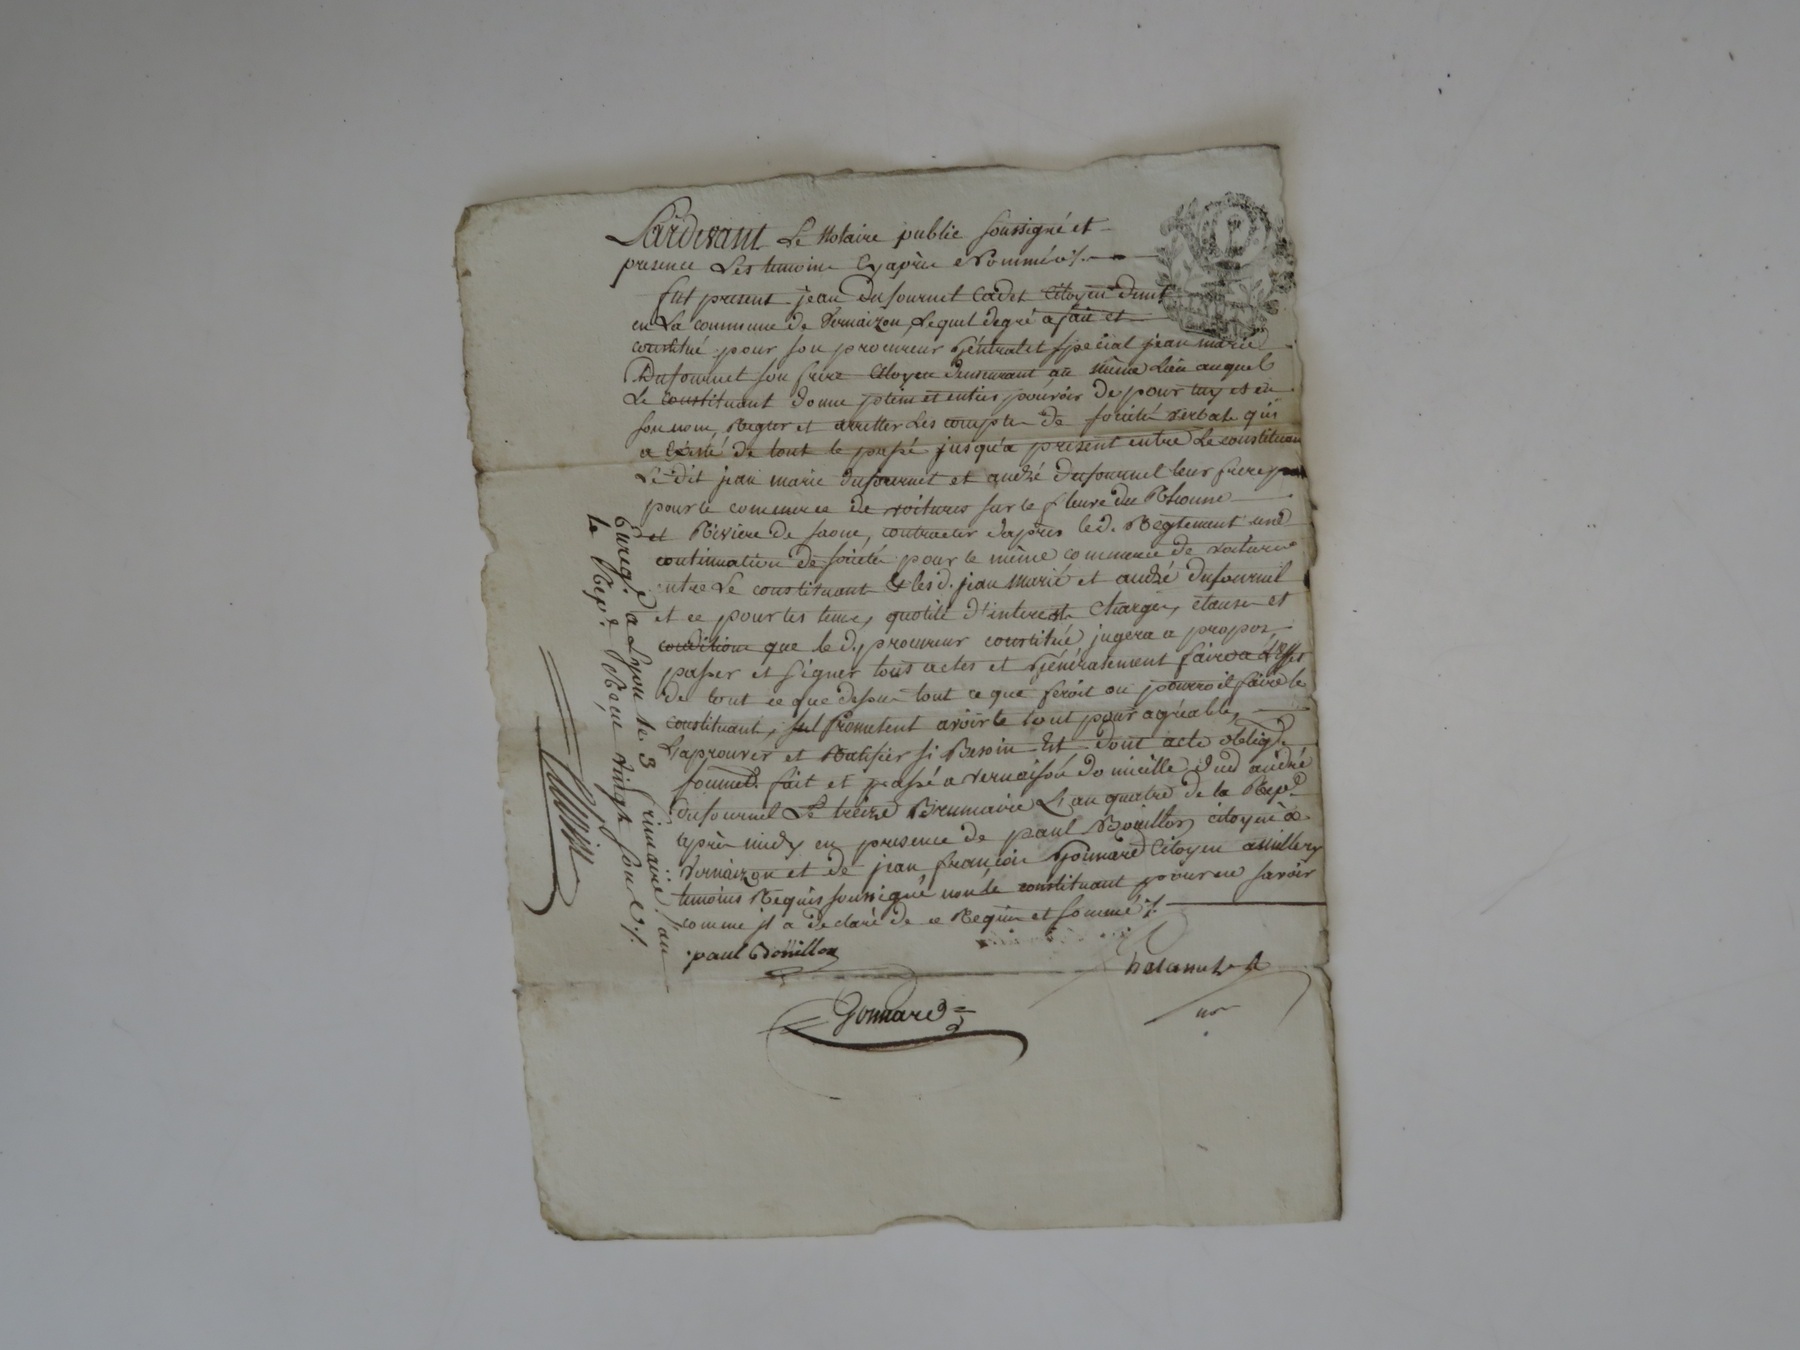 Pardevant Le Notaire public soussigné et
presence Les temoins Cyaprès Nommés ./.
fut present jean Dufournel Cadet Citoyen demt
en La commune de Vernaizon, Lequel de gré a fait et
constitué pour son procureur général et special jean marie
Dufournel son frere Citoyen demeurant au même Lieu auquel
Le constituant donne plein et entier pouvoir de pour luy et en
son nom, Regler et arretter Les comptes de societé verbale qui
a existé de tout le passé jusqu'a présent entre Le constituant
Le dit jean marie dufournel et andré dufournel leur frere
pour le commerce de voitures sur le fleuve du Rhosne
et Riviere de saone, contracter d'apres le d. Règlement une
continuation de societé pour le même commerce de voitures
entre Le constituant & les d. jean Marie et andré dufournel
et ce pour les tems, quotité d'interest Charges, clauses et
conditions que le d. procureur constitué jugera a propos,
passer et signer tous actes et généralement faire a L'effet
de tout ce que dessus tout ce que feroit ou pourroit faire le
constituant, promettent avoir le tout pour agréable,
L'aprouver et Ratifier si Besoin Est dont acte oblige
soumet fait et passé a vernaison domicille dud andré
Dufournel Le treize Brumaire L'an quatre de la Rep.
après midy en presence de paul Bouillon citoyen de
Vernaizon et de jean françois Gonnard Citoyen a millery
temoins Requis soussigné non le constituant pour ne savoir
comme jl a declaré de ce Requis et sommé ./.
paul Bouillon
Gonnard
Enreg. a Lyon le 3 frimaire l'an
4 Rep. Reçu vingt sous